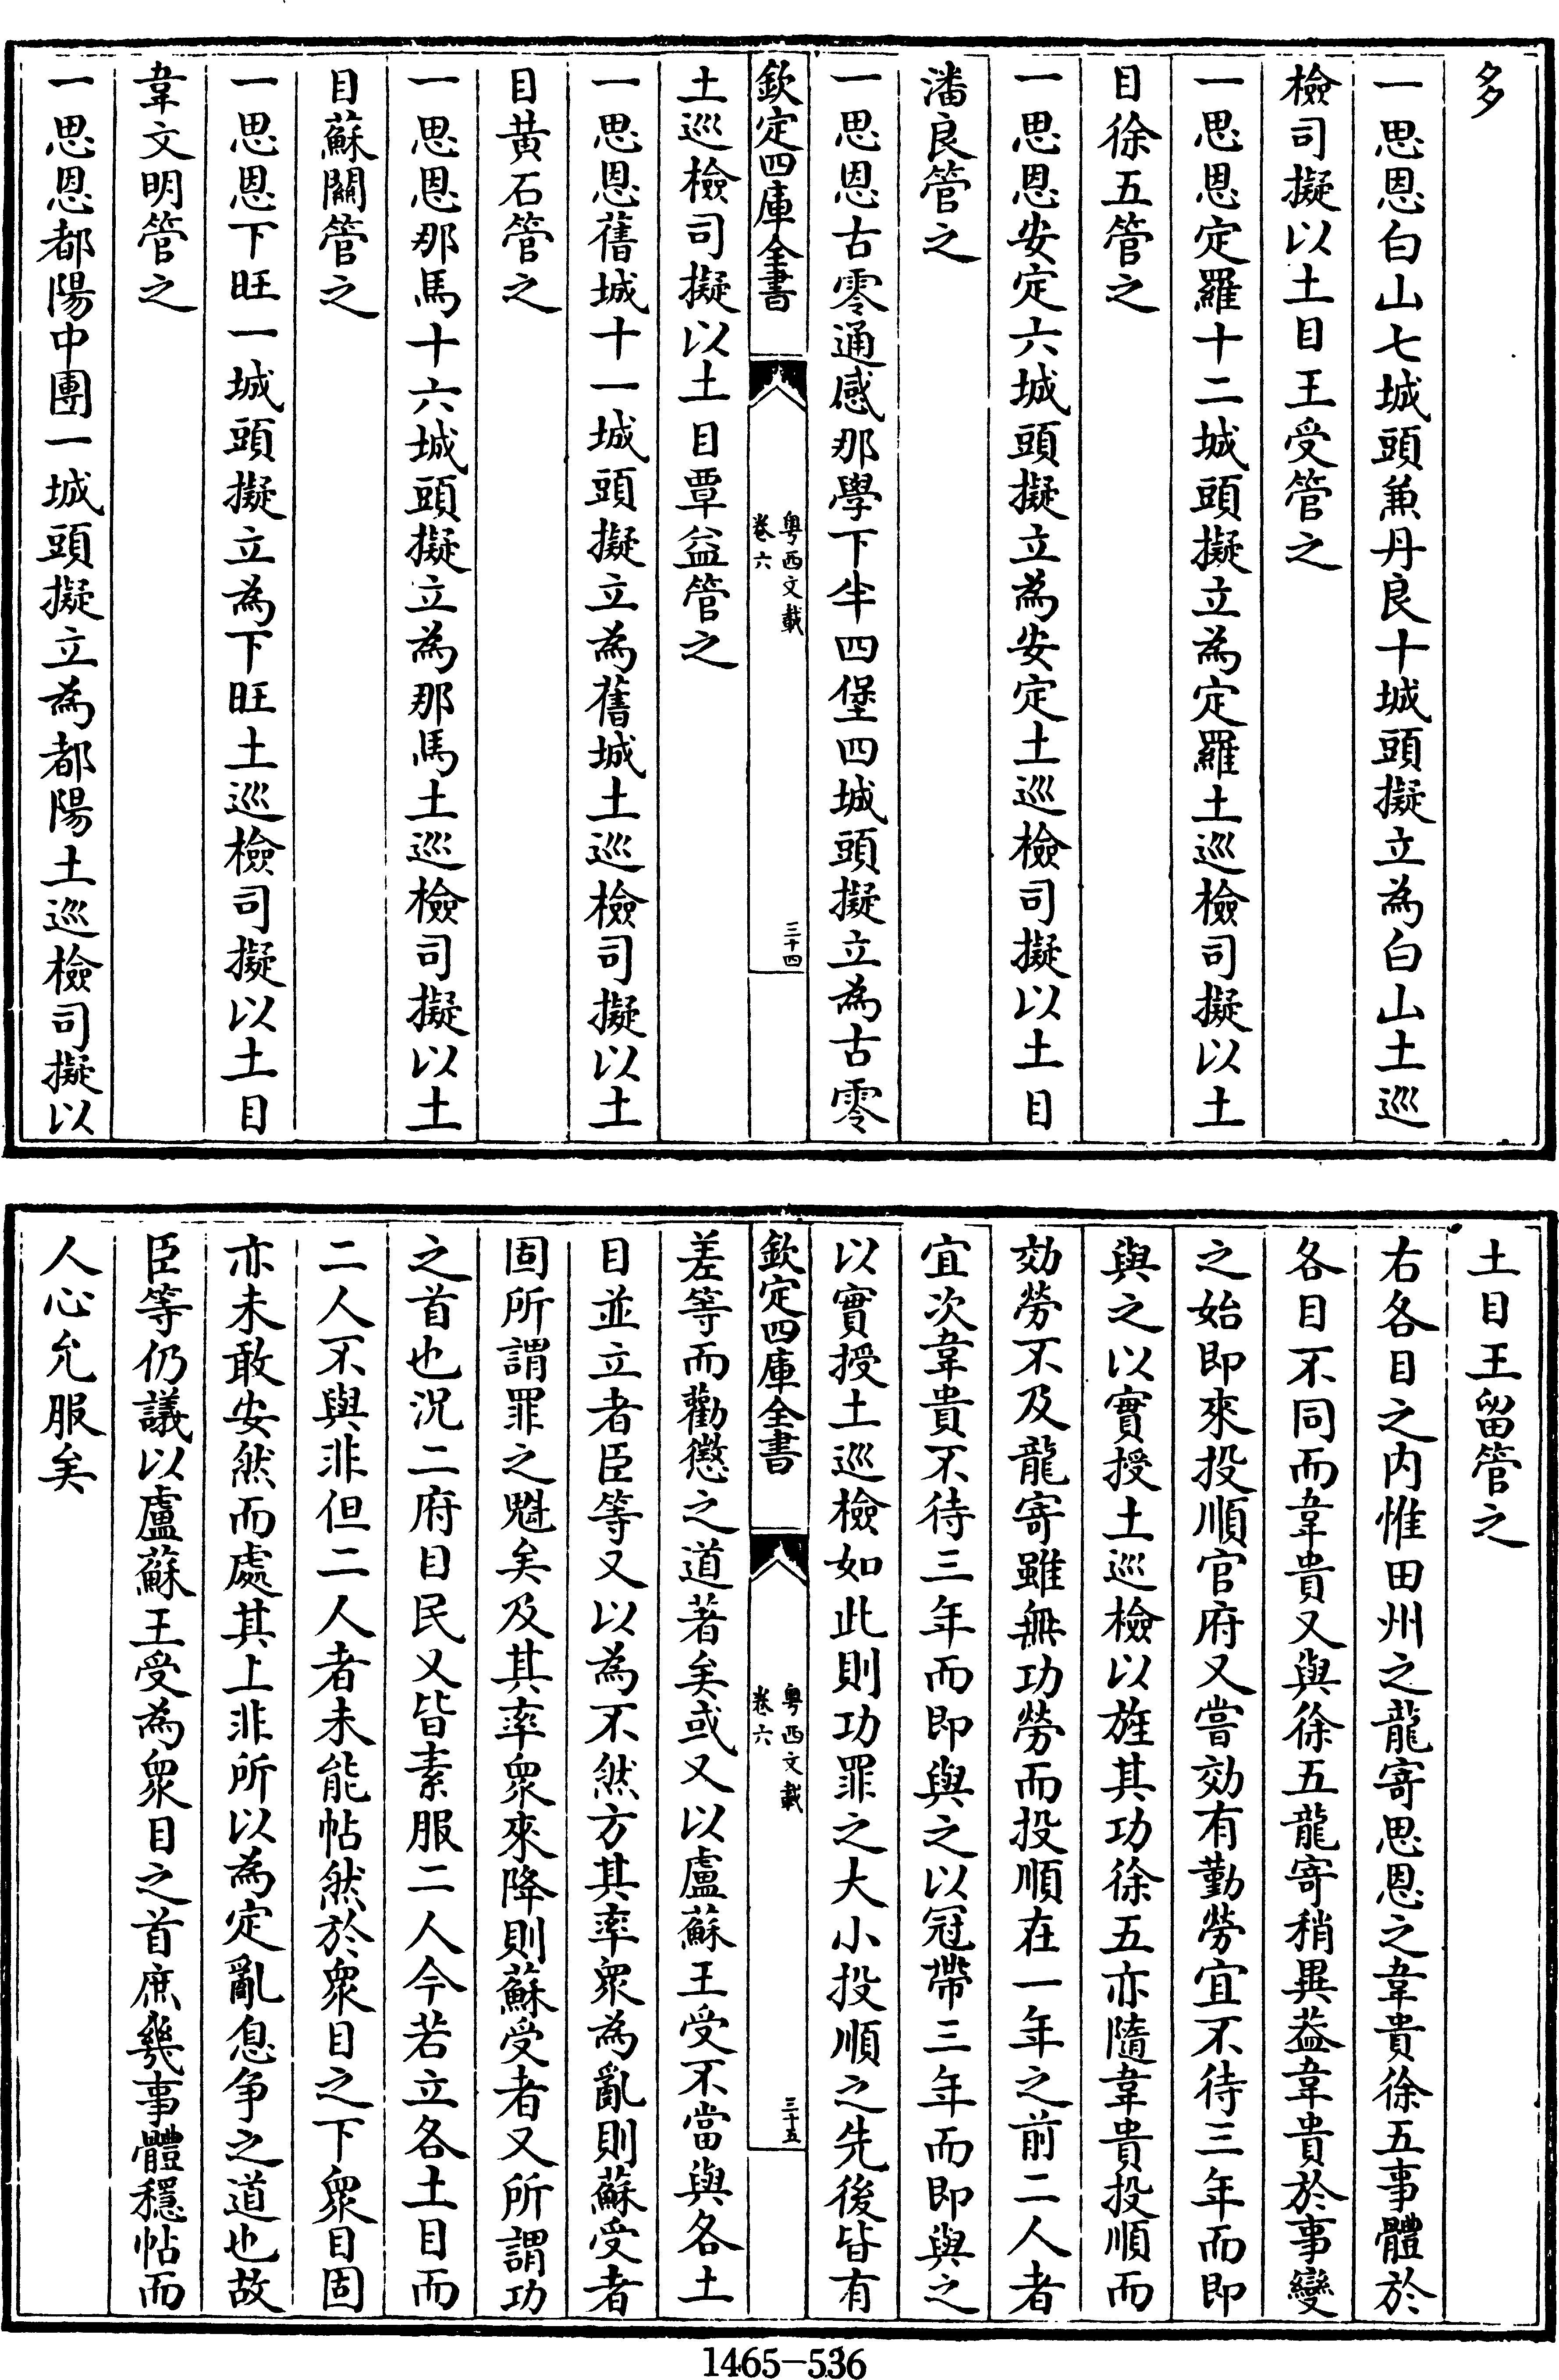 多
一思恩白山七城頭兼丹良十城頭擬立為白山土巡
檢司擬以土目王受管之
一思恩定羅十二城頭擬立為定羅土巡檢司擬以土
目徐五管之
一思恩安定六城頭擬立為安定土巡檢司擬以土目
潘良管之
一思恩古零通感那學下半四堡四城頭擬立為古零
欽定四庫全書
粤西文載
卷六
三十四
土巡檢司擬以土目覃益管之
一思恩舊城十一城頭擬立為舊城土巡檢司擬以土
目黄石管之
一思恩那馬十六城頭擬立為那馬土巡檢司擬以土
目蘇關管之
一思恩下旺一城頭擬立為下旺土巡檢司擬以土目
韋文明管之
一思恩都陽中團一城頭擬立為都陽土巡檢司擬以
土目王留管之
右各目之内惟田州之龍寄思恩之韋貴徐五事體於
各目不同而韋貴又與徐五龍寄稍異葢韋貴於事變
之始即來投順官府又嘗効有勤勞宜不待三年而即
與之以實授土巡檢以旌其功徐五亦隨韋貴投順而
効勞不及龍寄雖無功勞而投順在一年之前二人者
宜次韋貴不待三年而即與之以冠帶三年而即與之
以實授土巡檢如此則功罪之大小投順之先後皆有
欽定四庫全書
粤西文載
卷六
三十五
差等而勸懲之道著矣或又以盧蘇王受不當與各土
目並立者臣等又以為不然方其率衆為亂則蘇受者
固所謂罪之魁矣及其率衆來降則蘇受者又所謂功
之首也況二府目民又皆素服二人今若立各土目而
二人不與非但二人者未能帖然於衆目之下衆目固
亦未敢安然而處其上非所以為定亂息争之道也故
臣等仍議以盧蘇王受為衆目之首庶幾事體穩帖而
人心允服矣
1465-536